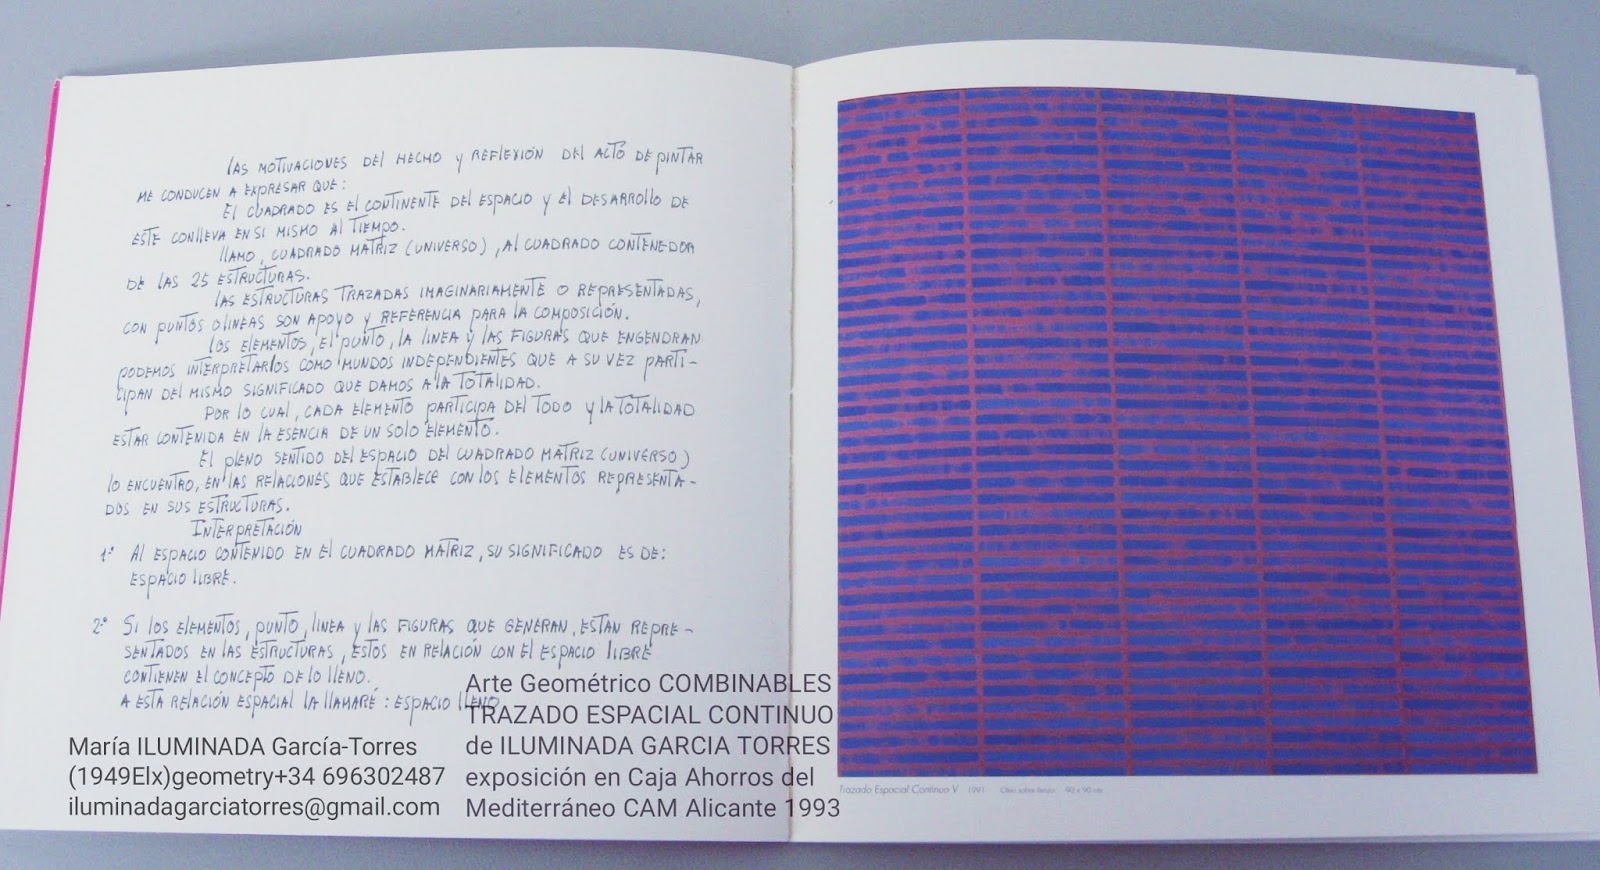 LAS MOTIVACIONES DEL HECHO Y REFLEXIÓN DEL ACTO DE PINTAR
ME CONDUCEN A EXPRESAR QUE:
EL CUADRADO ES EL CONTINENTE DEL ESPACIO Y EL DESARROLLO DE
ESTE CONLLEVA EN SI MISMO AL TIEMPO.
LLAMO, CUADRADO MATRIZ (UNIVERSO), AL CUADRADO CONTENEDOR
DE LAS 25 ESTRUCTURAS.
LAS ESTRUCTURAS TRAZADAS IMAGINARIAMENTE O REPRESENTADAS,
CON PUNTOS O LINEAS SON APOYO Y REFERENCIA PARA LA COMPOSICIÓN.
LOS ELEMENTOS, EL PUNTO, LA LINEA Y LAS FIGURAS QUE ENGENDRAN
PODEMOS INTERPRETARLOS COMO MUNDOS INDEPENDIENTES QUE A SU VEZ PARTI-
CIPAN DEL MISMO SIGNIFICADO QUE DAMOS A LA TOTALIDAD.
POR LO CUAL, CADA ELEMENTO PARTICIPA DEL TODO Y LA TOTALIDAD
ESTAR CONTENIDA EN LA ESENCIA DE UN SOLO ELEMENTO.
EL PLENO SENTIDO DEL ESPACIO DEL CUADRADO MATRIZ (UNIVERSO)
LO ENCUENTRO, EN LAS RELACIONES QUE ESTABLECE CON LOS ELEMENTOS REPRESENTA-
DOS EN SUS ESTRUCTURAS.
INTERPRETACIÓN
1º AL ESPACIO CONTENIDO EN EL CUADRADO MATRIZ, SU SIGNIFICADO ES DE:
ESPACIO LIBRE.
2º SI LOS ELEMENTOS, PUNTO, LINEA Y LAS FIGURAS QUE GENERAN, ESTAN REPRE-
SENTADOS EN LAS ESTRUCTURAS, ESTOS EN RELACIÓN CON EL ESPACIO LIBRE
CONTIENEN EL CONCEPTO DE LO LLENO.
A ESTA RELACIÓN ESPACIAL LA LLAMARÉ: ESPACIO LLENO
María ILUMINADA García-Torres
(1949Elx)geometry+34 696302487
iluminadagarciatorres@gmail.com
Arte Geométrico COMBINABLES
TRAZADO ESPACIAL CONTINUO
de ILUMINADA GARCIA TORRES
exposición en Caja Ahorros del
Mediterráneo CAM Alicante 1993
Trazado Espacial Continuo V 1991 Óleo sobre lienzo 90 x 90 cm